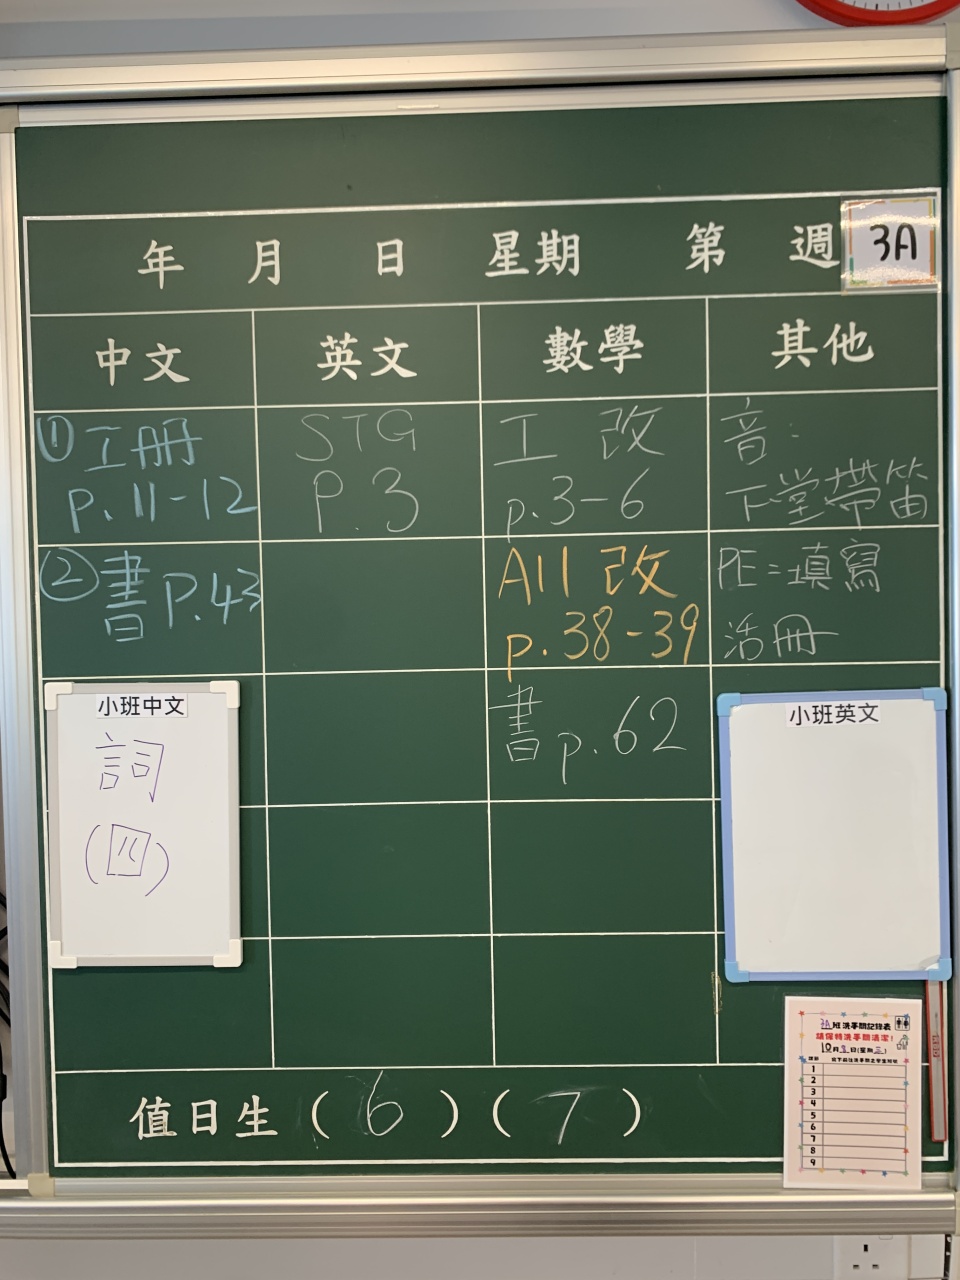 年 月 日 星期 第 週 3A
中文 英文 數學 其他
① 工冊
p.11-12
STG
P.3
工 改
p.3-6
音:
下堂帶笛
② 書 P.43
All 改
p.38-39
PE=填寫
活冊
書 p.62
小班中文
詞
(四)
小班英文
值日生 ( 6 ) ( 7 )
3A班洗手間記錄表
請保持洗手間清潔!
1
2
3
4
5
6
7
8
9